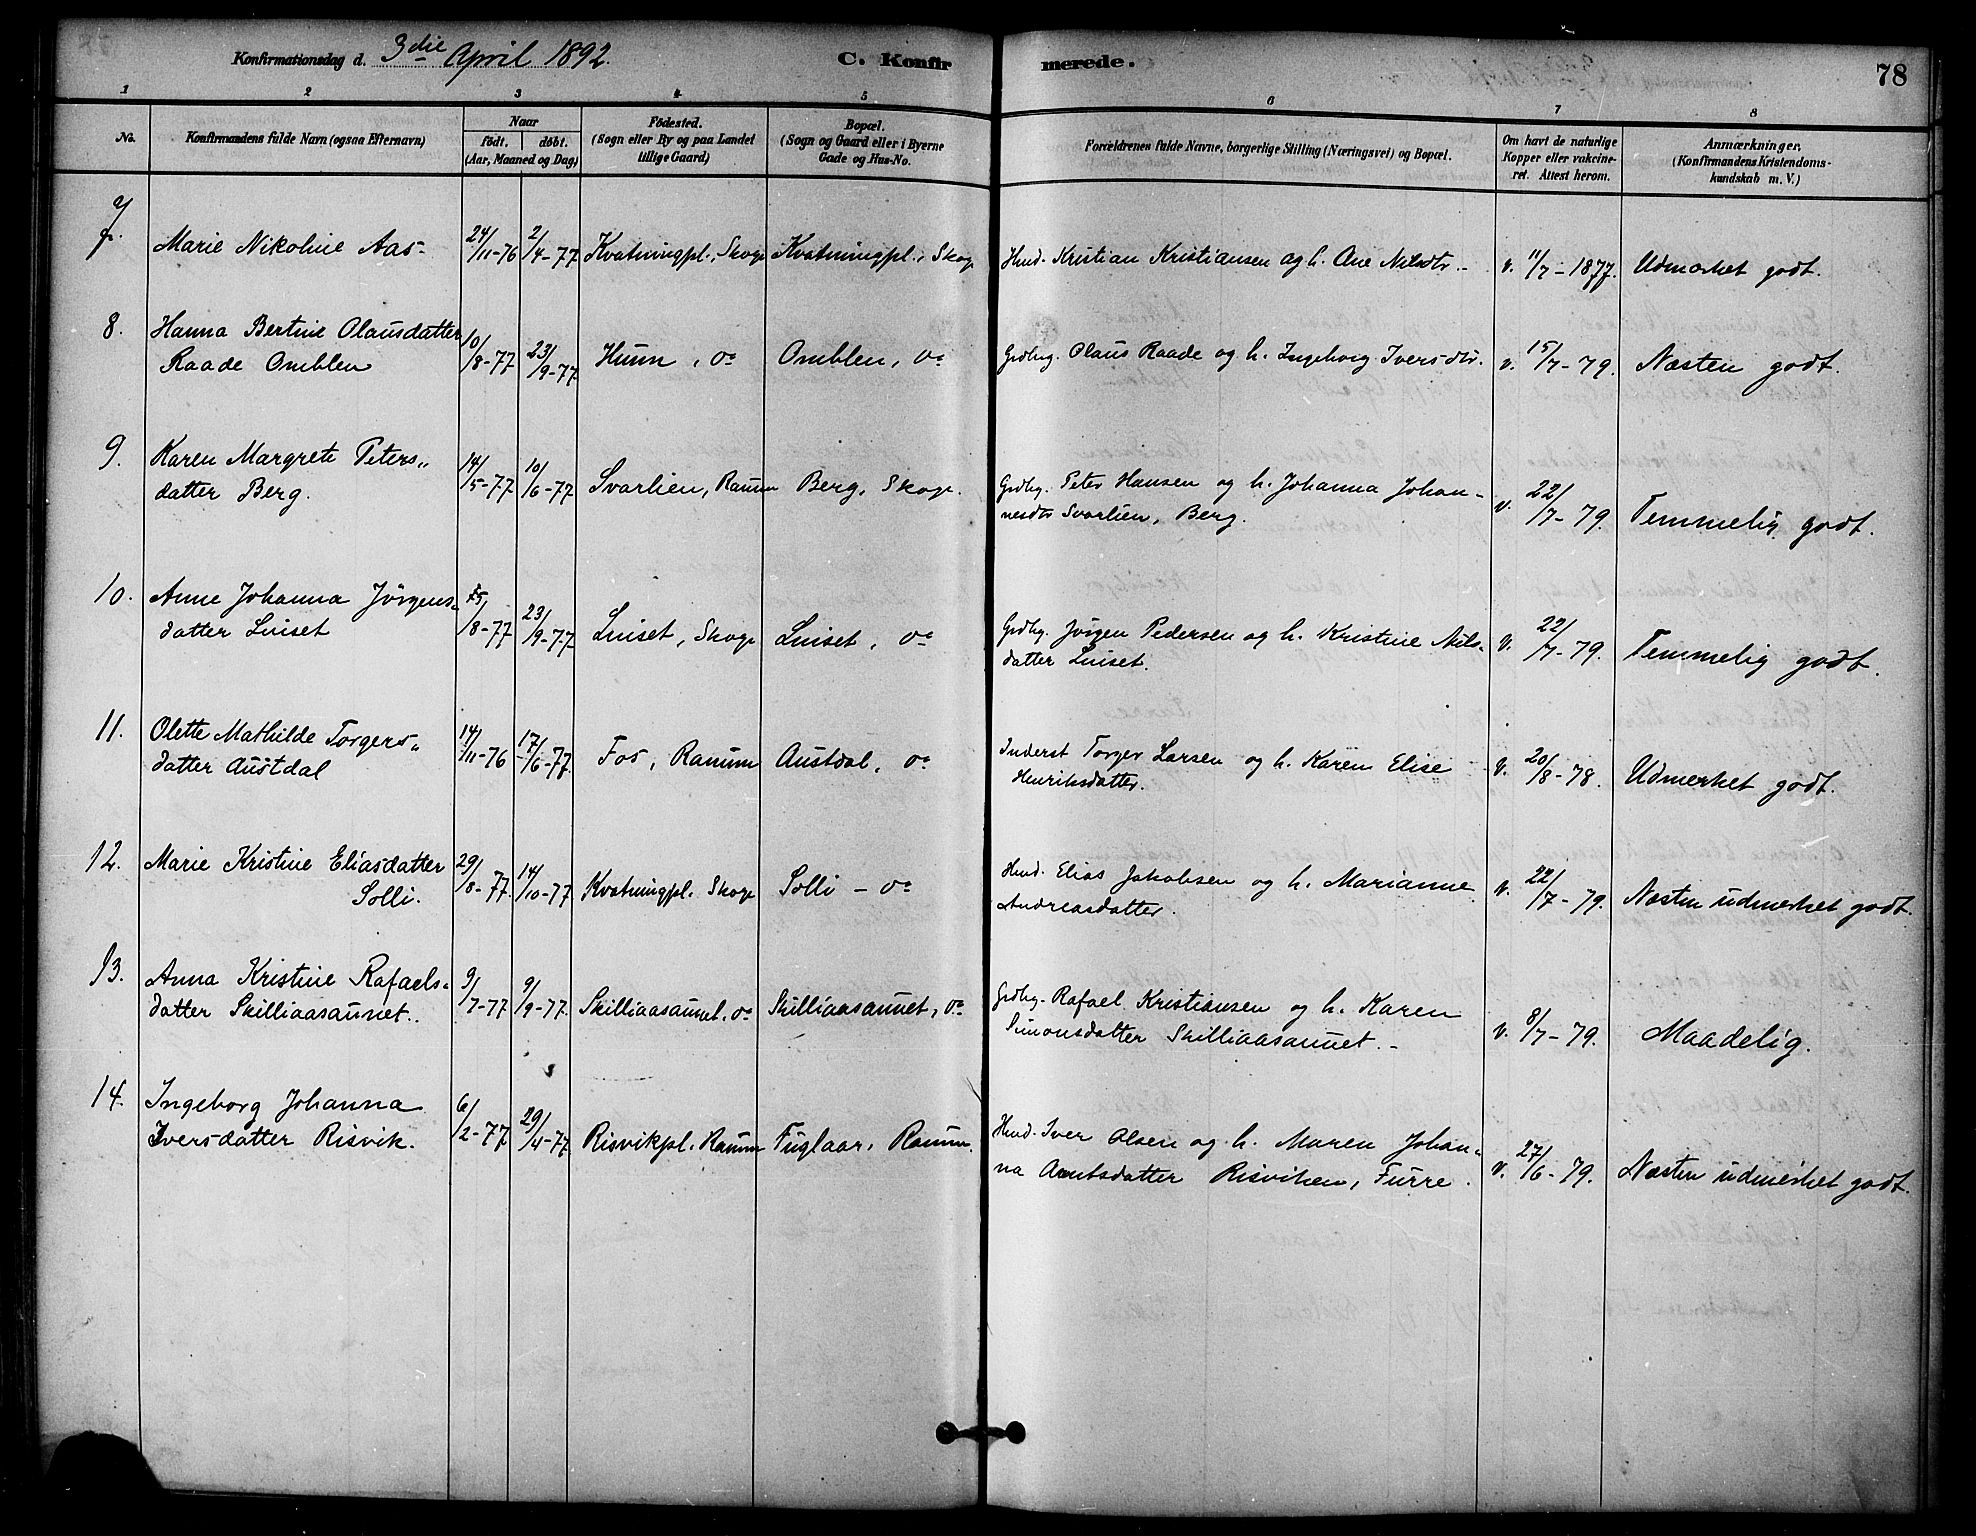 Konfirmationsdag d. 3die April 1892. C. Konfirmerede. 78
1 2 3 4 5 6 7 8
No. Konfirmandens fulde Navn (ogsaa Efternavn) Naar födt. döbt. (Aar, Maaned og Dag) Födested. (Sogn eller By og paa Landet tillige Gaard) Bopæl. (Sogn og Gaard eller i Byerne Gade og Hus-No. Forældrenes fulde Navne, borgerlige Stilling (Næringsvei) og Bopæl. Om havt de naturlige Kopper eller vakcineret. Attest herom. Anmærkninger. (Konfirmandens Kristendomskundskab m. V.)
7. Marie Nikoline Aas- 24/11-76 2/4-77 Kvatningpl., Skage Kvatningpl., Skage Hmd. Kristian Kristiansen og h. Ane Nilsdtr. - v. 11/7-1877. Udmærket godt.
8. Hanna Bertine Olausdatter 10/8-77 23/9-77 Huun, do Omblen, do Grdbg. Olaus Raade og h. Ingeborg Iversdtr. v. 15/7-79. Næsten godt.
Raade Omblen
9. Karen Margrete Peters„ 14/5-77 10/6-77 Svarlien, Ranum Berg, Skage. Grdbg. Peter Hansen og h. Johanna Johan- v. 22/7-79. Temmelig godt.
datter Berg. nesdtr Svarlien, Berg.
10. Anne Johanna Jörgens- /8-77 23/9-77 Luiset, Skage Luiset, do Grdbg. Jörgen Pedersen og h. Kristine Nils- v. 22/7-79. Temmelig godt.
datter Luiset datter Luiset.
11. Olette Mathilde Torgers„ 14/11-76 17/6-77 Fos, Ranum Austdal, do Inderst Torger Larsen og h. Karen Elise v. 20/8-78. Udmerket godt.
datter Austdal Henriksdatter.
12. Marie Kristine Eliasdatter 29/8-77. 14/10-77 Kvatningpl. Skage Solli - do Hmd. Elias Jakobsen og h. Marianne v. 22/7-79. Næsten udmerket godt.
Solli. Andreasdatter.
13. Anna Kristine Rafaels- 9/7-77 9/9-77. Skilliaasaunet, do Skilliaasaunet, do Grdbg. Rafael Kristiansen og h. Karen v. 8/7-79. Maadelig.
datter Skilliaasaunet. Simonsdatter Skilliaasaunet. -
14. Ingeborg Johanna 6/2-77 29/4-77 Risvikpl. Ranum Fuglaar, Ranum. Hmd. Iver Olsen og h. Maren Johan- v. 27/6-79. Næsten udmerket godt.
Iversdatter Risvik. na Arntsdatter Risviken, Furre.